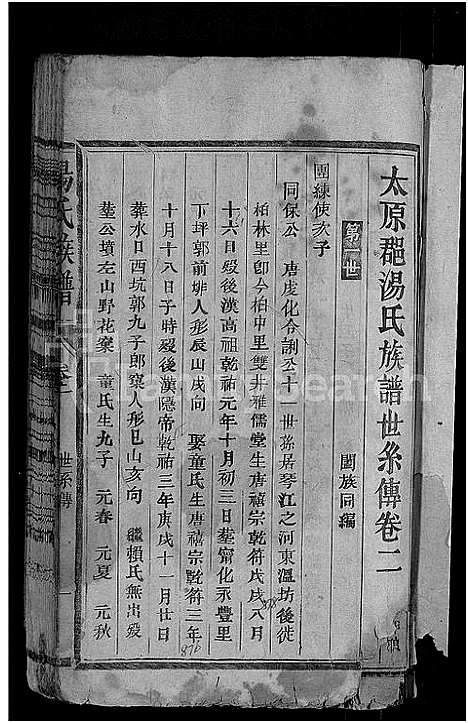 太原郡湯氏族譜世系傳卷二
闔族同編
第一世
團練使次子
同保公 唐虔化令諱丕十一世孫居琴江之河東溫坊後徙
柏林里卽今柏中里雙井雅儒堂生唐禧宗乾符戊戌八月
878
十六日歿後漢高祖乾祐元年十月初三日塟甯化永豐里
下坪郭前排人形辰山戌向 娶童氏生唐禧宗乾符三年
876
十月十八日子時歿後漢隱帝乾祐三年庚戌十一月廿日
葬水口西坑郭九子郎窠人形巳山亥向 繼賴氏無出歿
塟公墳左山野花窠 童氏生九子 元春 元夏 元秋
湯氏族譜
卷二
世系傳
一